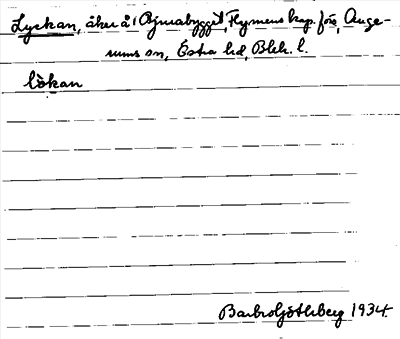 Lyckan, åker å Rymabygget, Flymens kap. fös, Auge-
rums sn, Östra hd, Blek. l.
lökan
Barbro Götheberg 1934.